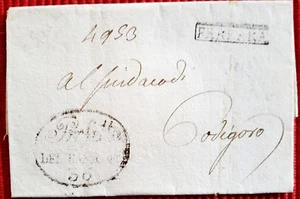 4953
FERRARA
al Sindaco di
Codigoro
DEL